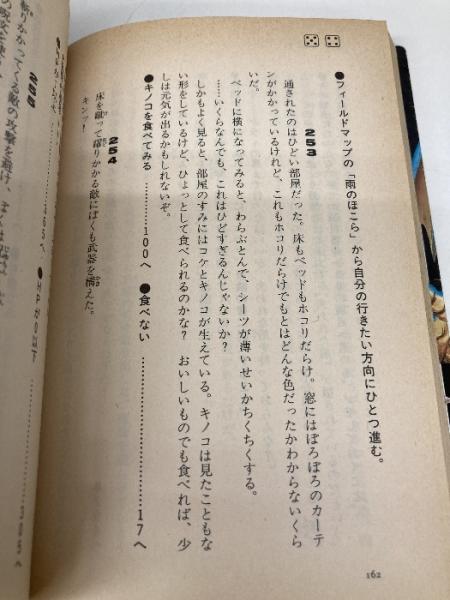 ●フィールドマップの「雨のほこら」から自分の行きたい方向にひとつ進む。
253
通されたのはひどい部屋だった。床もベッドもホコリだらけ。窓にはぼろぼろのカーテ
ンがかかっているけれど、これもホコリだらけでもとはどんな色だったかわからないくら
いだ。
ベッドに横になってみると、わらぶとんで、シーツが薄いせいかちくちくする。
……いくらなんでも、これはひどすぎるんじゃないか?
しかもよく見ると、部屋のすみにはコケとキノコが生えている。キノコは見たこともな
い形をしているけど、ひょっとして食べられるのかな? おいしいものでも食べれば、少
しは元気が出るかもしれないぞ。
●キノコを食べてみる…………100へ
●食べない…………………………17へ
254
床を蹴って躍りかかる敵にぼくも武器を構えた。
キンッ!
162
255
斬りかかってくる敵の攻撃を避け、
●HPが0以下